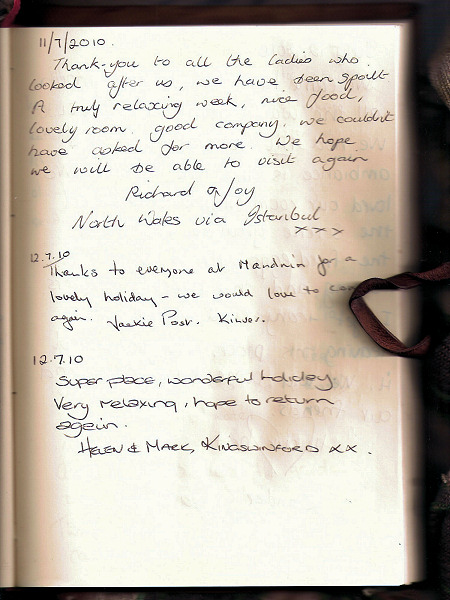 11/7/2010.
Thank-you to all the ladies who
looked after us, we have been spoilt
A truly relaxing week, nice food,
lovely room, good company, we couldn't
have asked for more. We hope
we will be able to visit again
Richard & Joy
North Wales via Istanbul
x x x
12.7.10
Thanks to everyone at for a
lovely holiday - we would love to
again. Jackie Post.
12.7.10
Super place, wonderful holiday.
Very relaxing, hope to return
again.
HELEN & MARK, KINGSWINFORD xx.